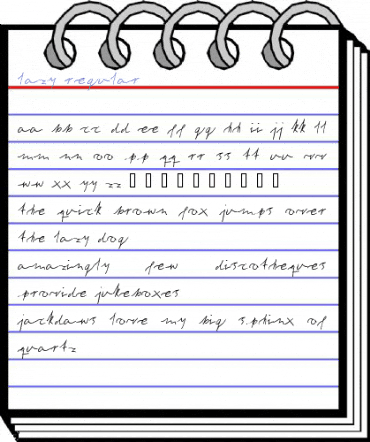 lazy regular
aa bb cc dd ee ff gg hh ii jj kk ll
mm nn oo pp qq rr ss tt uu vvv
ww xx yy zz
the quick brown fox jumps over
the lazy dog
amazingly few discotheques
provide jukeboxes
jackdaws love my big sphinx of
quartz